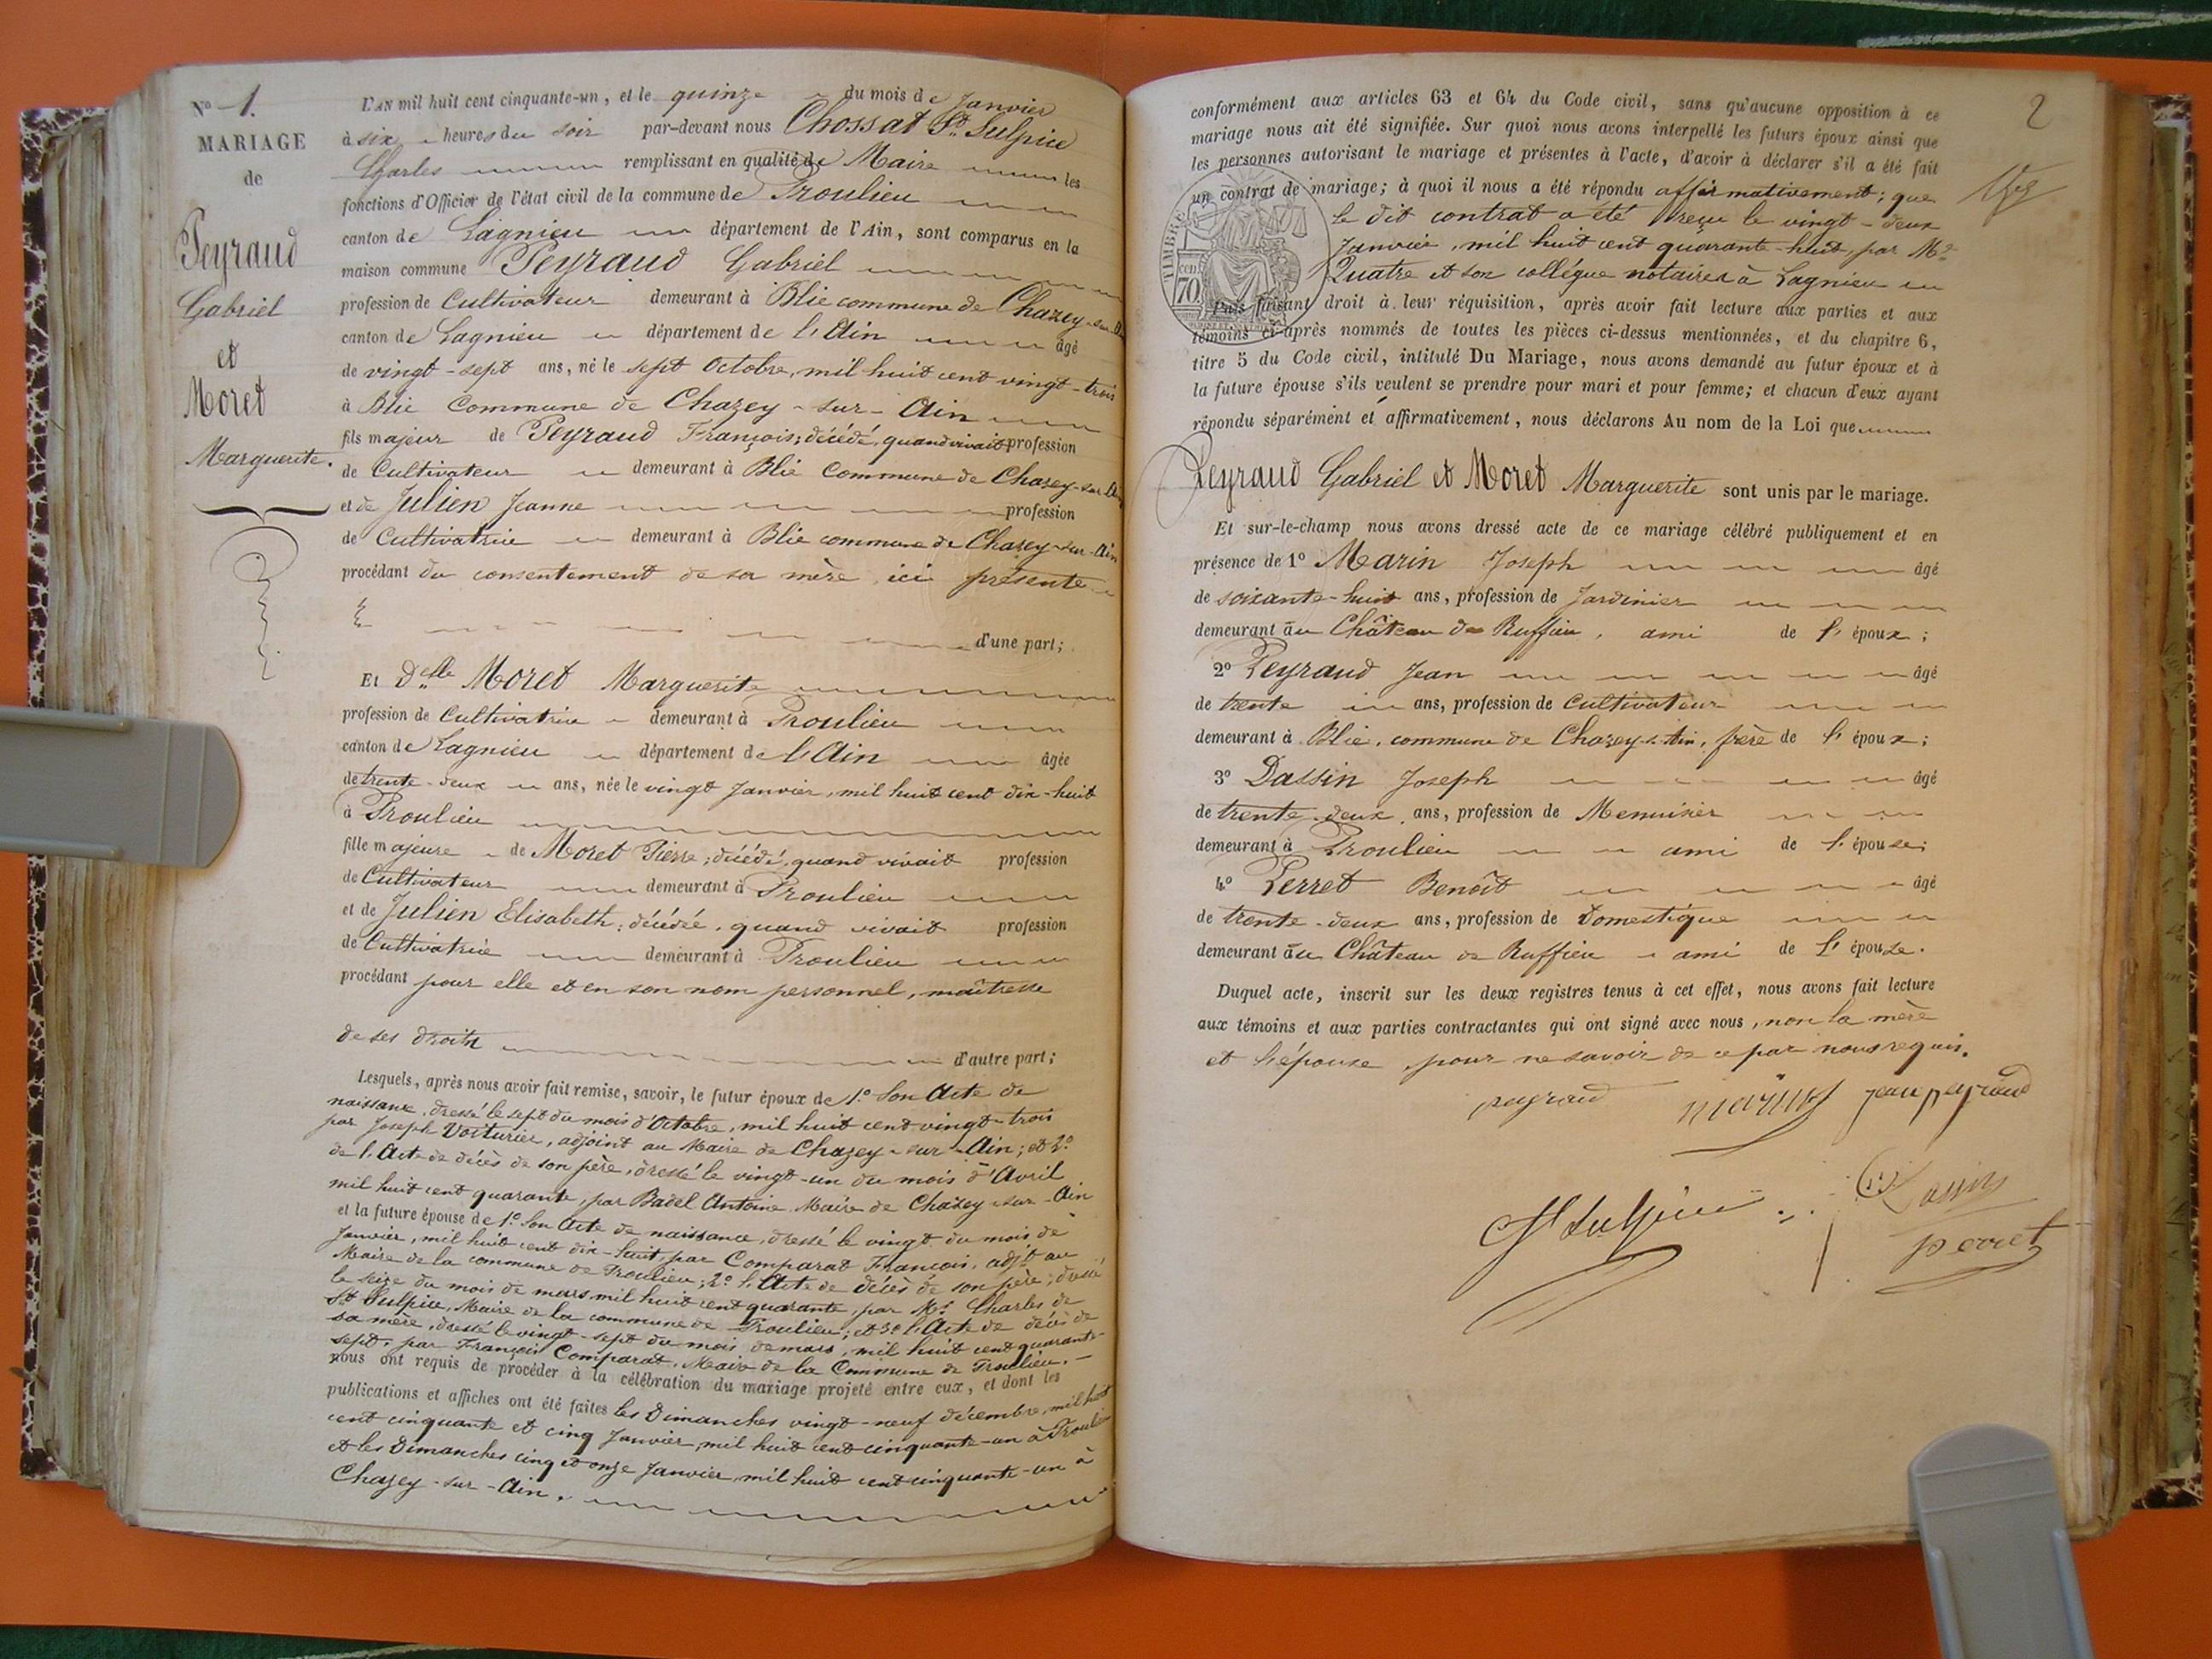 N.º 1.
MARIAGE
de
Peyraud
Gabriel
et
Moret
Marguerite.
L'AN mil huit cent cinquante-un, et le quinze du mois de Janvier
à six heures du soir par-devant nous Chossat St. Sulpice
Charles remplissant en qualité de Maire les
fonctions d'Officier de l'état civil de la commune de Proulieu
canton de Lagnieu département de l'Ain, sont comparus en la
maison commune Peyraud Gabriel
profession de Cultivateur demeurant à Blie commune de Chazey-sur-Ain
canton de Lagnieu département de l'Ain âgé
de vingt-sept ans, né le sept Octobre, mil huit cent vingt-trois
à Blie Commune de Chazey-sur-Ain
fils majeur de Peyraud François; décédé, quand vivait profession
de Cultivateur demeurant à Blie Commune de Chazey-sur-Ain
et de Julien Jeanne profession
de Cultivatrice demeurant à Blie commune de Chazey-sur-Ain
procédant du consentement de sa mère, ici présente
d'une part;
Et Delle Moret Marguerite
profession de Cultivatrice demeurant à Proulieu
canton de Lagnieu département de l'Ain âgée
de trente-deux ans, née le vingt Janvier, mil huit cent dix-huit
à Proulieu
fille majeure de Moret Pierre; décédé, quand vivait profession
de Cultivateur demeurant à Proulieu
et de Julien Elisabeth; décédée, quand vivait profession
de Cultivatrice demeurant à Proulieu
procédant pour elle et en son nom personnel, maîtresse
de ses droits d'autre part;
Lesquels, après nous avoir fait remise, savoir, le futur époux de 1.º Son Acte de
naissance, dressé le sept du mois d'Octobre, mil huit cent vingt-trois
par Joseph Voiturier, adjoint au Maire de Chazey-sur-Ain; et 2.º
de l'Acte de décès de son père, dressé le vingt-un du mois d'Avril
mil huit cent quarante, par Badel Antoine, Maire de Chazey-sur-Ain
et la future épouse de 1.º Son Acte de naissance, dressé le vingt du mois de
Janvier, mil huit cent dix-huit, par Comparat François, adjt au
Maire de la commune de Proulieu; 2.º l'Acte de décès de son père; dressé
le seize du mois de mars mil huit cent quarante, par Mr. Charles de
St Sulpice, Maire de la commune de Proulieu; et 3.º l'Acte de décès de
sa mère, dressé le vingt-sept du mois de mars, mil huit cent quarante-
sept, par François Comparat, Maire de la Commune de Proulieu.
nous ont requis de procéder à la célébration du mariage projeté entre eux, et dont les
publications et affiches ont été faites les Dimanches vingt-neuf décembre, mil huit
cent cinquante et cinq Janvier, mil huit cent cinquante-un à Proulieu
et les Dimanches cinq et onze Janvier, mil huit cent cinquante-un à
Chazey-sur-Ain.
2
conformément aux articles 63 et 64 du Code civil, sans qu'aucune opposition à ce
mariage nous ait été signifiée. Sur quoi nous avons interpellé les futurs époux ainsi que
les personnes autorisant le mariage et présentes à l'acte, d'avoir à déclarer s'il a été fait
un contrat de mariage; à quoi il nous a été répondu affirmativement; que
le dit contrat a été reçu le vingt-deux
Janvier, mil huit cent quarante-huit, par Me
Quatre et son collégue notaires à Lagnieu
TIMBRE
cen.
70
Puis faisant droit à leur réquisition, après avoir fait lecture aux parties et aux
témoins ci-après nommés de toutes les pièces ci-dessus mentionnées, et du chapitre 6,
titre 5 du Code civil, intitulé Du Mariage, nous avons demandé au futur époux et à
la future épouse s'ils veulent se prendre pour mari et pour femme; et chacun d'eux ayant
répondu séparément et affirmativement, nous déclarons Au nom de la Loi que
Peyraud Gabriel et Moret Marguerite sont unis par le mariage.
Et sur-le-champ nous avons dressé acte de ce mariage célébré publiquement et en
présence de 1º Marin Joseph âgé
de soixante-huit ans, profession de Jardinier
demeurant au Château de Ruffieu, ami de l'époux;
2º Peyraud Jean âgé
de trente ans, profession de Cultivateur
demeurant à Blie, commune de Chazey-s-Ain, frère de l'époux;
3º Dassin Joseph âgé
de trente-deux ans, profession de Menuisier
demeurant à Proulieu ami de l'épouse;
4º Perret Benoît âgé
de trente-deux ans, profession de Domestique
demeurant au Château de Ruffieu ami de l'épouse.
Duquel acte, inscrit sur les deux registres tenus à cet effet, nous avons fait lecture
aux témoins et aux parties contractantes qui ont signé avec nous, non la mère
et l'épouse pour ne savoir de ce par nous requis.
peyraud marin jean peyraud
St Sulpice Dassin
perret